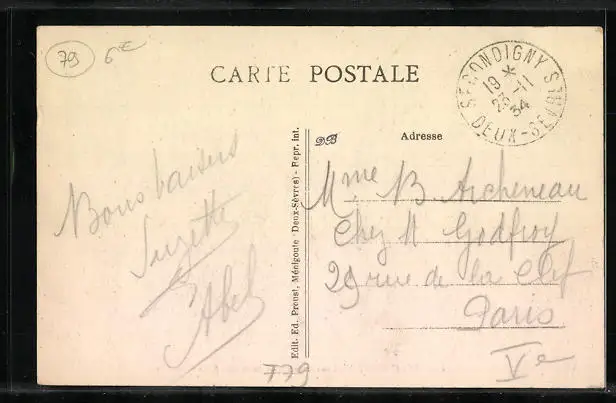 79
6€
CARTE POSTALE
SECONDIGNY S/ L'AUTIZE
19 *
25 -11
34
DEUX-SEVRES
DB
Adresse
Edit. Ed. Proust, Ménigoute (Deux-Sèvres) - Repr. int.
Bons baisers
Suzette
Abel
Mme B Archeneau
Chez M Godfroy
29 rue de la Clef
Paris
Ve
779